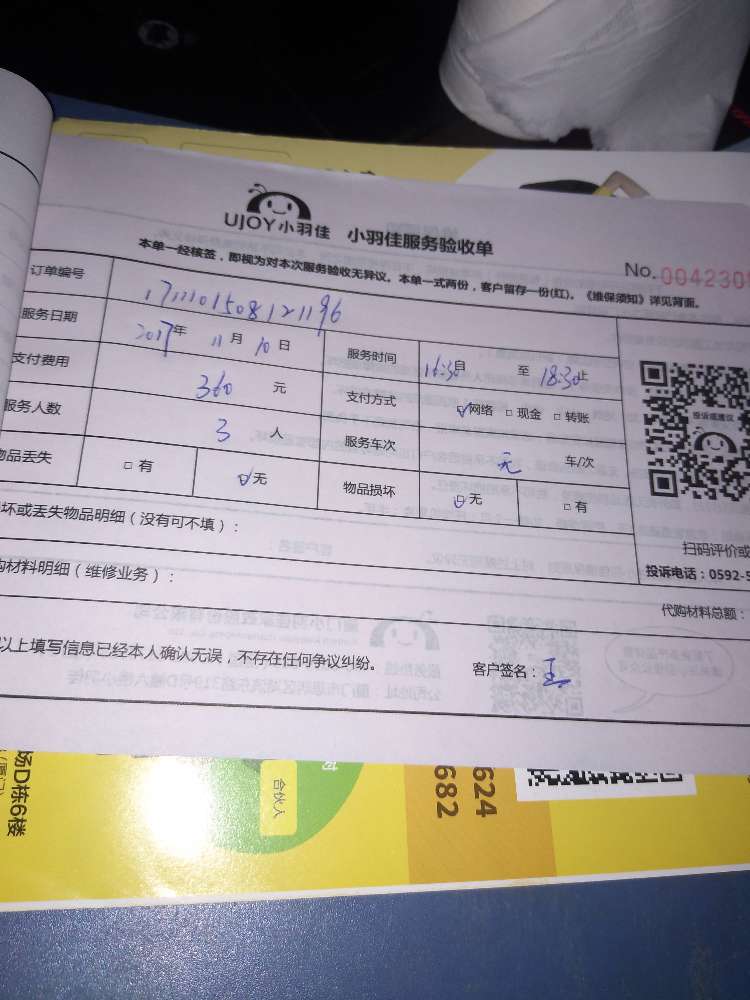 UJOY小羽佳 小羽佳服务验收单
No.0042309
本单一经核签，即视为对本次服务验收无异议。本单一式两份，客户留存一份(红)。《维保须知》详见背面。
订单编号 1711101508121196
服务日期 2017年 11月 10日 服务时间 16:30自 至 18:30止
支付费用 360 元 支付方式 ☑网络 □现金 □转账
服务人数 3 人 服务车次 无 车/次
品丢失 □有 ☑无 物品损坏 ☑无 □有
投诉或建议
坏或丢失物品明细（没有可不填）：
扫码评价或
投诉电话：0592-5
购材料明细（维修业务）：
代购材料总额：
以上填写信息已经本人确认无误，不存在任何争议纠纷。 客户签名：王
合伙人
624
682
场D栋6楼